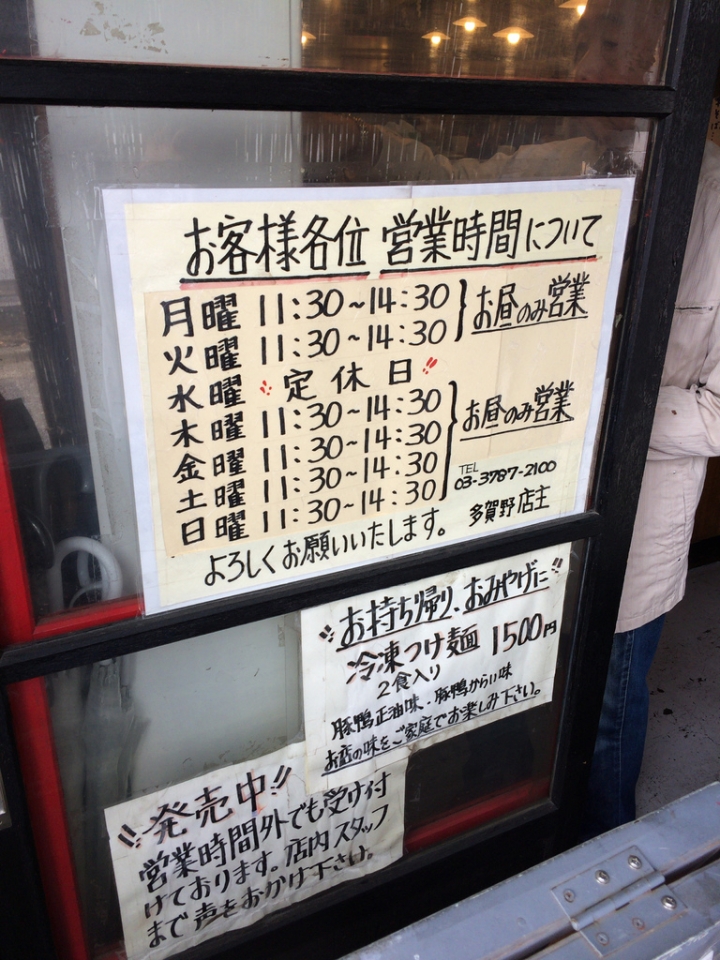 お客様各位 営業時間について
月曜 11:30~14:30
火曜 11:30~14:30
お昼のみ営業
水曜 定休日!!
木曜 11:30~14:30
金曜 11:30~14:30
土曜 11:30~14:30
日曜 11:30~14:30
お昼のみ営業
TEL
03-3787-2100
多賀野店主
よろしくお願いいたします。
お持ち帰り、おみやげに
冷凍つけ麺 1500円
2食入り
豚鴨正油味・豚鴨からい味
お店の味をご家庭でお楽しみ下さい。
発売中!!
営業時間外でも受け付
けております。店内スタッフ
まで声をおかけ下さい。